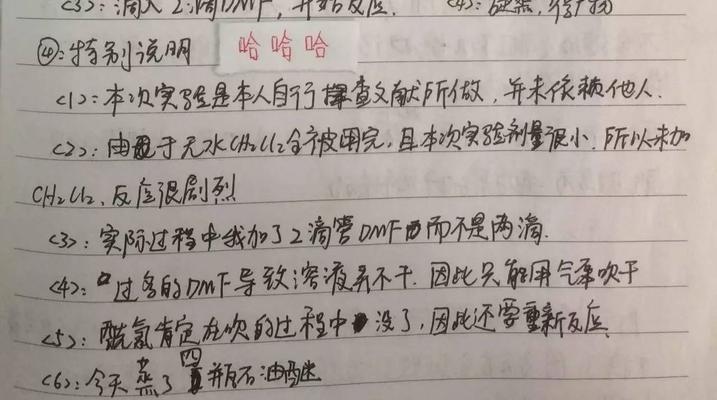 <3>: 滴入2滴DMF, 开始反应. <4>: 旋蒸, 得产物
④: 特别说明 哈哈哈
<1>: 本次实验是本人自行查文献所做, 并未依赖他人.
<2>: 由于无水CH2Cl2全被用完, 且本次实验剂量很小. 所以未加
CH2Cl2, 反应很剧烈
<3>: 实际过程中我加了2滴管DMF而不是两滴.
<4>: 过多的DMF导致溶液弄不干. 因此只能用气泵吹干
<5>: 酰氯肯定在吹的过程中没了, 因此还要重新反应.
<6>: 今天蒸了四瓶石油醚